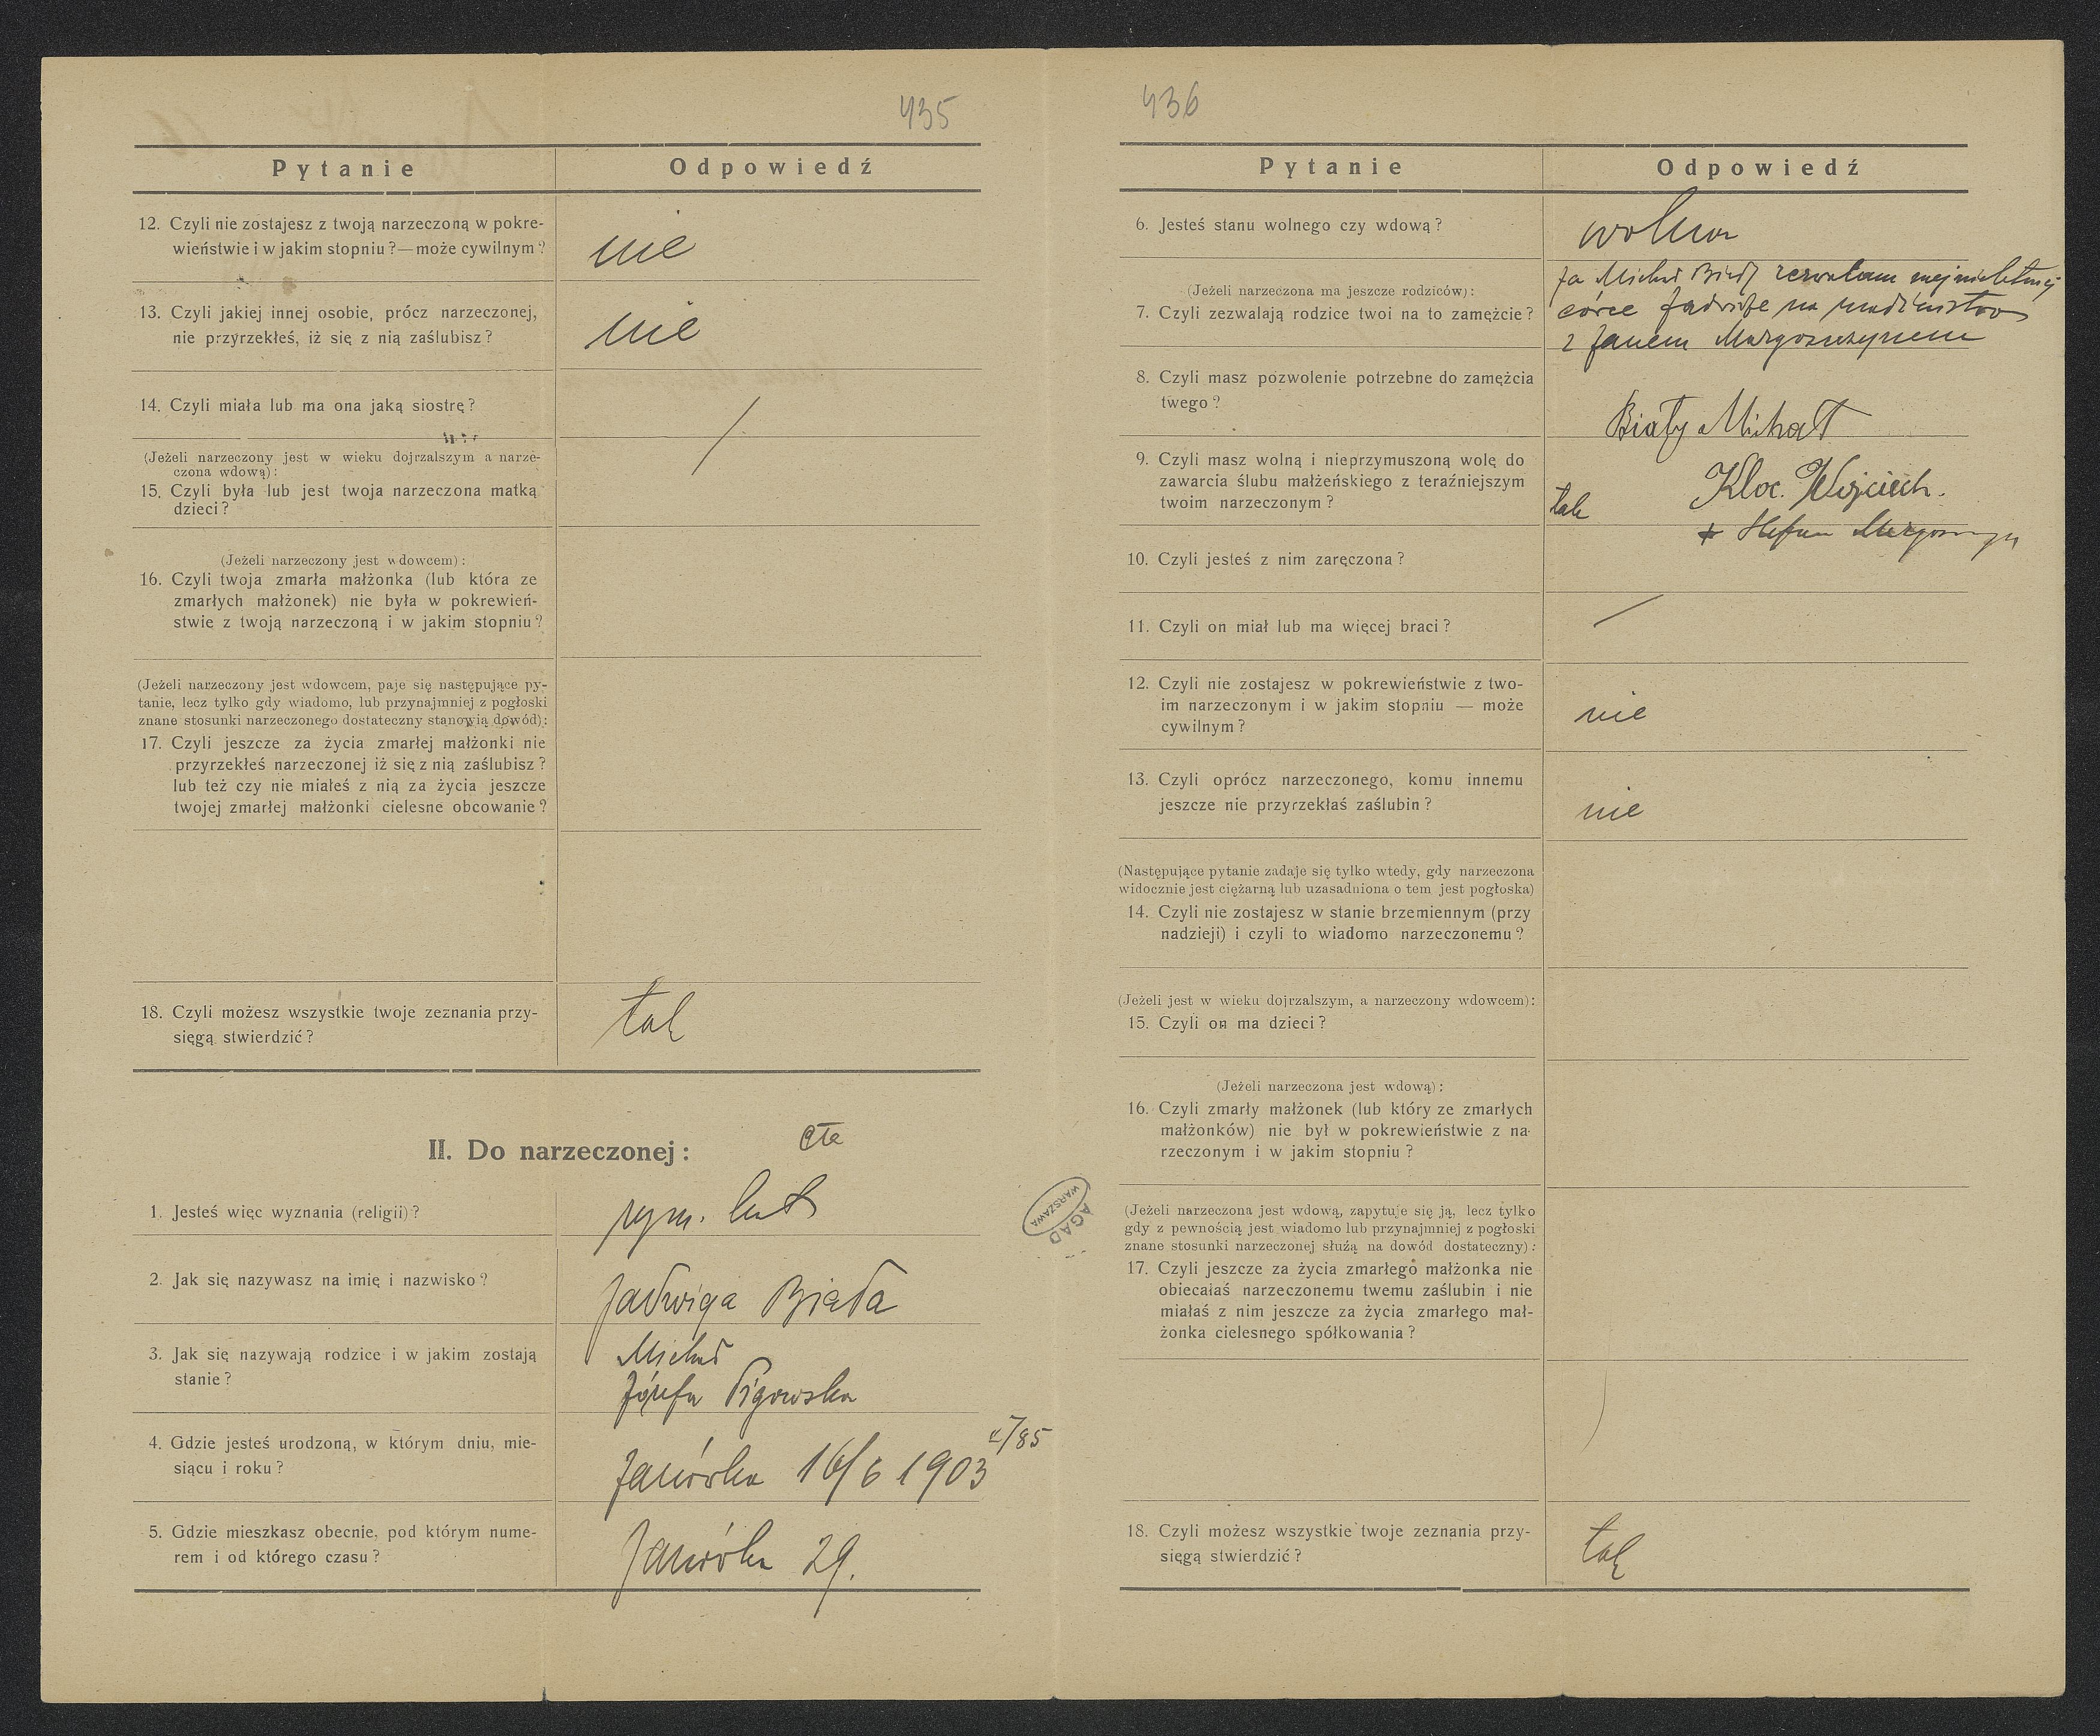 435
Pytanie
Odpowiedź
12. Czyli nie zostajesz z twoją narzeczoną w pokre-
wieństwie i w jakim stopniu?—może cywilnym?
nie
13. Czyli jakiej innej osobie, prócz narzeczonej,
nie przyrzekłeś, iż się z nią zaślubisz?
nie
14. Czyli miała lub ma ona jaką siostrę?
/
(Jeżeli narzeczony jest w wieku dojrzalszym a narze-
czona wdową):
15. Czyli była lub jest twoja narzeczona matką
dzieci?
(Jeżeli narzeczony jest wdowcem):
16. Czyli twoja zmarła małżonka (lub która ze
zmarłych małżonek) nie była w pokrewień-
stwie z twoją narzeczoną i w jakim stopniu?
(Jeżeli narzeczony jest wdowcem, paje się następujące py-
tanie, lecz tylko gdy wiadomo, lub przynajmniej z pogłoski
znane stosunki narzeczonego dostateczny stanowią dowód):
17. Czyli jeszcze za życia zmarłej małżonki nie
przyrzekłeś narzeczonej iż się z nią zaślubisz?
lub też czy nie miałeś z nią za życia jeszcze
twojej zmarłej małżonki cielesne obcowanie?
18. Czyli możesz wszystkie twoje zeznania przy-
sięgą stwierdzić?
tak
II. Do narzeczonej:
1. Jesteś więc wyznania (religii)?
rym. kat
2. Jak się nazywasz na imię i nazwisko?
Jadwiga Biała
3. Jak się nazywają rodzice i w jakim zostają
stanie?
Michał
Józefa
4. Gdzie jesteś urodzoną, w którym dniu, mie-
siącu i roku?
Janówka 16/6 1903
5. Gdzie mieszkasz obecnie, pod którym nume-
rem i od którego czasu?
Janówka 29.
AGAD
WARSZAWA
436
Pytanie
Odpowiedź
6. Jesteś stanu wolnego czy wdową?
wolna
(Jeżeli narzeczona ma jeszcze rodziców):
7. Czyli zezwalają rodzice twoi na to zamężcie?
Ja Michał Biały zezwalam mej nieletniej
córce Jadwidze na małżeństwo
z Janem Margoszczynem
8. Czyli masz pozwolenie potrzebne do zamężcia
twego?
Biały Michał
9. Czyli masz wolną i nieprzymuszoną wolę do
zawarcia ślubu małżeńskiego z teraźniejszym
twoim narzeczonym?
tak
Kloc. Wojciech.
+ Stefan
10. Czyli jesteś z nim zaręczona?
11. Czyli on miał lub ma więcej braci?
/
12. Czyli nie zostajesz w pokrewieństwie z two-
im narzeczonym i w jakim stopniu — może
cywilnym?
nie
13. Czyli oprócz narzeczonego, komu innemu
jeszcze nie przyrzekłaś zaślubin?
nie
(Następujące pytanie zadaje się tylko wtedy, gdy narzeczona
widocznie jest ciężarną lub uzasadniona o tem jest pogłoska)
14. Czyli nie zostajesz w stanie brzemiennym (przy
nadzieji) i czyli to wiadomo narzeczonemu?
(Jeżeli jest w wieku dojrzalszym, a narzeczony wdowcem):
15. Czyli on ma dzieci?
(Jeżeli narzeczona jest wdową):
16. Czyli zmarły małżonek (lub który ze zmarłych
małżonków) nie był w pokrewieństwie z na-
rzeczonym i w jakim stopniu?
(Jeżeli narzeczona jest wdową, zapytuje się ją, lecz tylko
gdy z pewnością jest wiadomo lub przynajmniej z pogłoski
znane stosunki narzeczonej służą na dowód dostateczny):
17. Czyli jeszcze za życia zmarłego małżonka nie
obiecałaś narzeczonemu twemu zaślubin i nie
miałaś z nim jeszcze za życia zmarłego mał-
żonka cielesnego spółkowania?
18. Czyli możesz wszystkie twoje zeznania przy-
sięgą stwierdzić?
tak